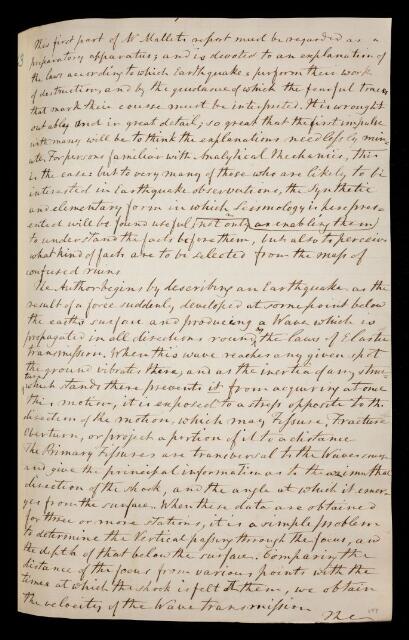 This first part of Mr Mallet's report must be regarded as a
preparatory apparatus; and is devoted to an explanation of
the laws according to which Earthquakes perform their work
of destruction, and by the guidance of which the fearful traces
that mark their course must be interpreted. It is wrought
out ably and in great detail; so great that the first impulse
with many will be to think the explanations needlessly min-
ute. For persons familiar with Analytical Mechanics, this
is the case: but to very many of those who are likely to be
interested in Earthquake observations, the Synthetic
and elementary form in which Seismology is here pres-
ented will be found useful, not only as enabling them
to understand the facts before them, but also to perceive
what kind of facts are to be selected from the mass of
confused ruins
The Author begins by describing an Earthquake as the
result of a force suddenly developed at some point below
the earth's surface and producing a Wave which is
propagated in all directions round, by the laws of Elastic
transmission. When this wave reaches any given spot
the ground vibrates there, and as the inertia of any struc-
ture which stands there prevents it from acquiring at once
this motion, it is exposed to a stress opposite to the
direction of the motion, which may Fissure, Fracture
Overturn, or project a portion of it to a distance
The Primary Fissures are transversal to the Waves way
and give the principal information as to the azimuthal
direction of the shock, and the angle at which it emer-
ges from the surface. When these data are obtained
for three or more stations, it is a simple problem
to determine the Vertical passing through the focus, and
the depth of that below the surface. Comparing the
distance of the focus from various points with the
times at which the shock is felt at them, we obtain
the velocity of the Wave transmission
The